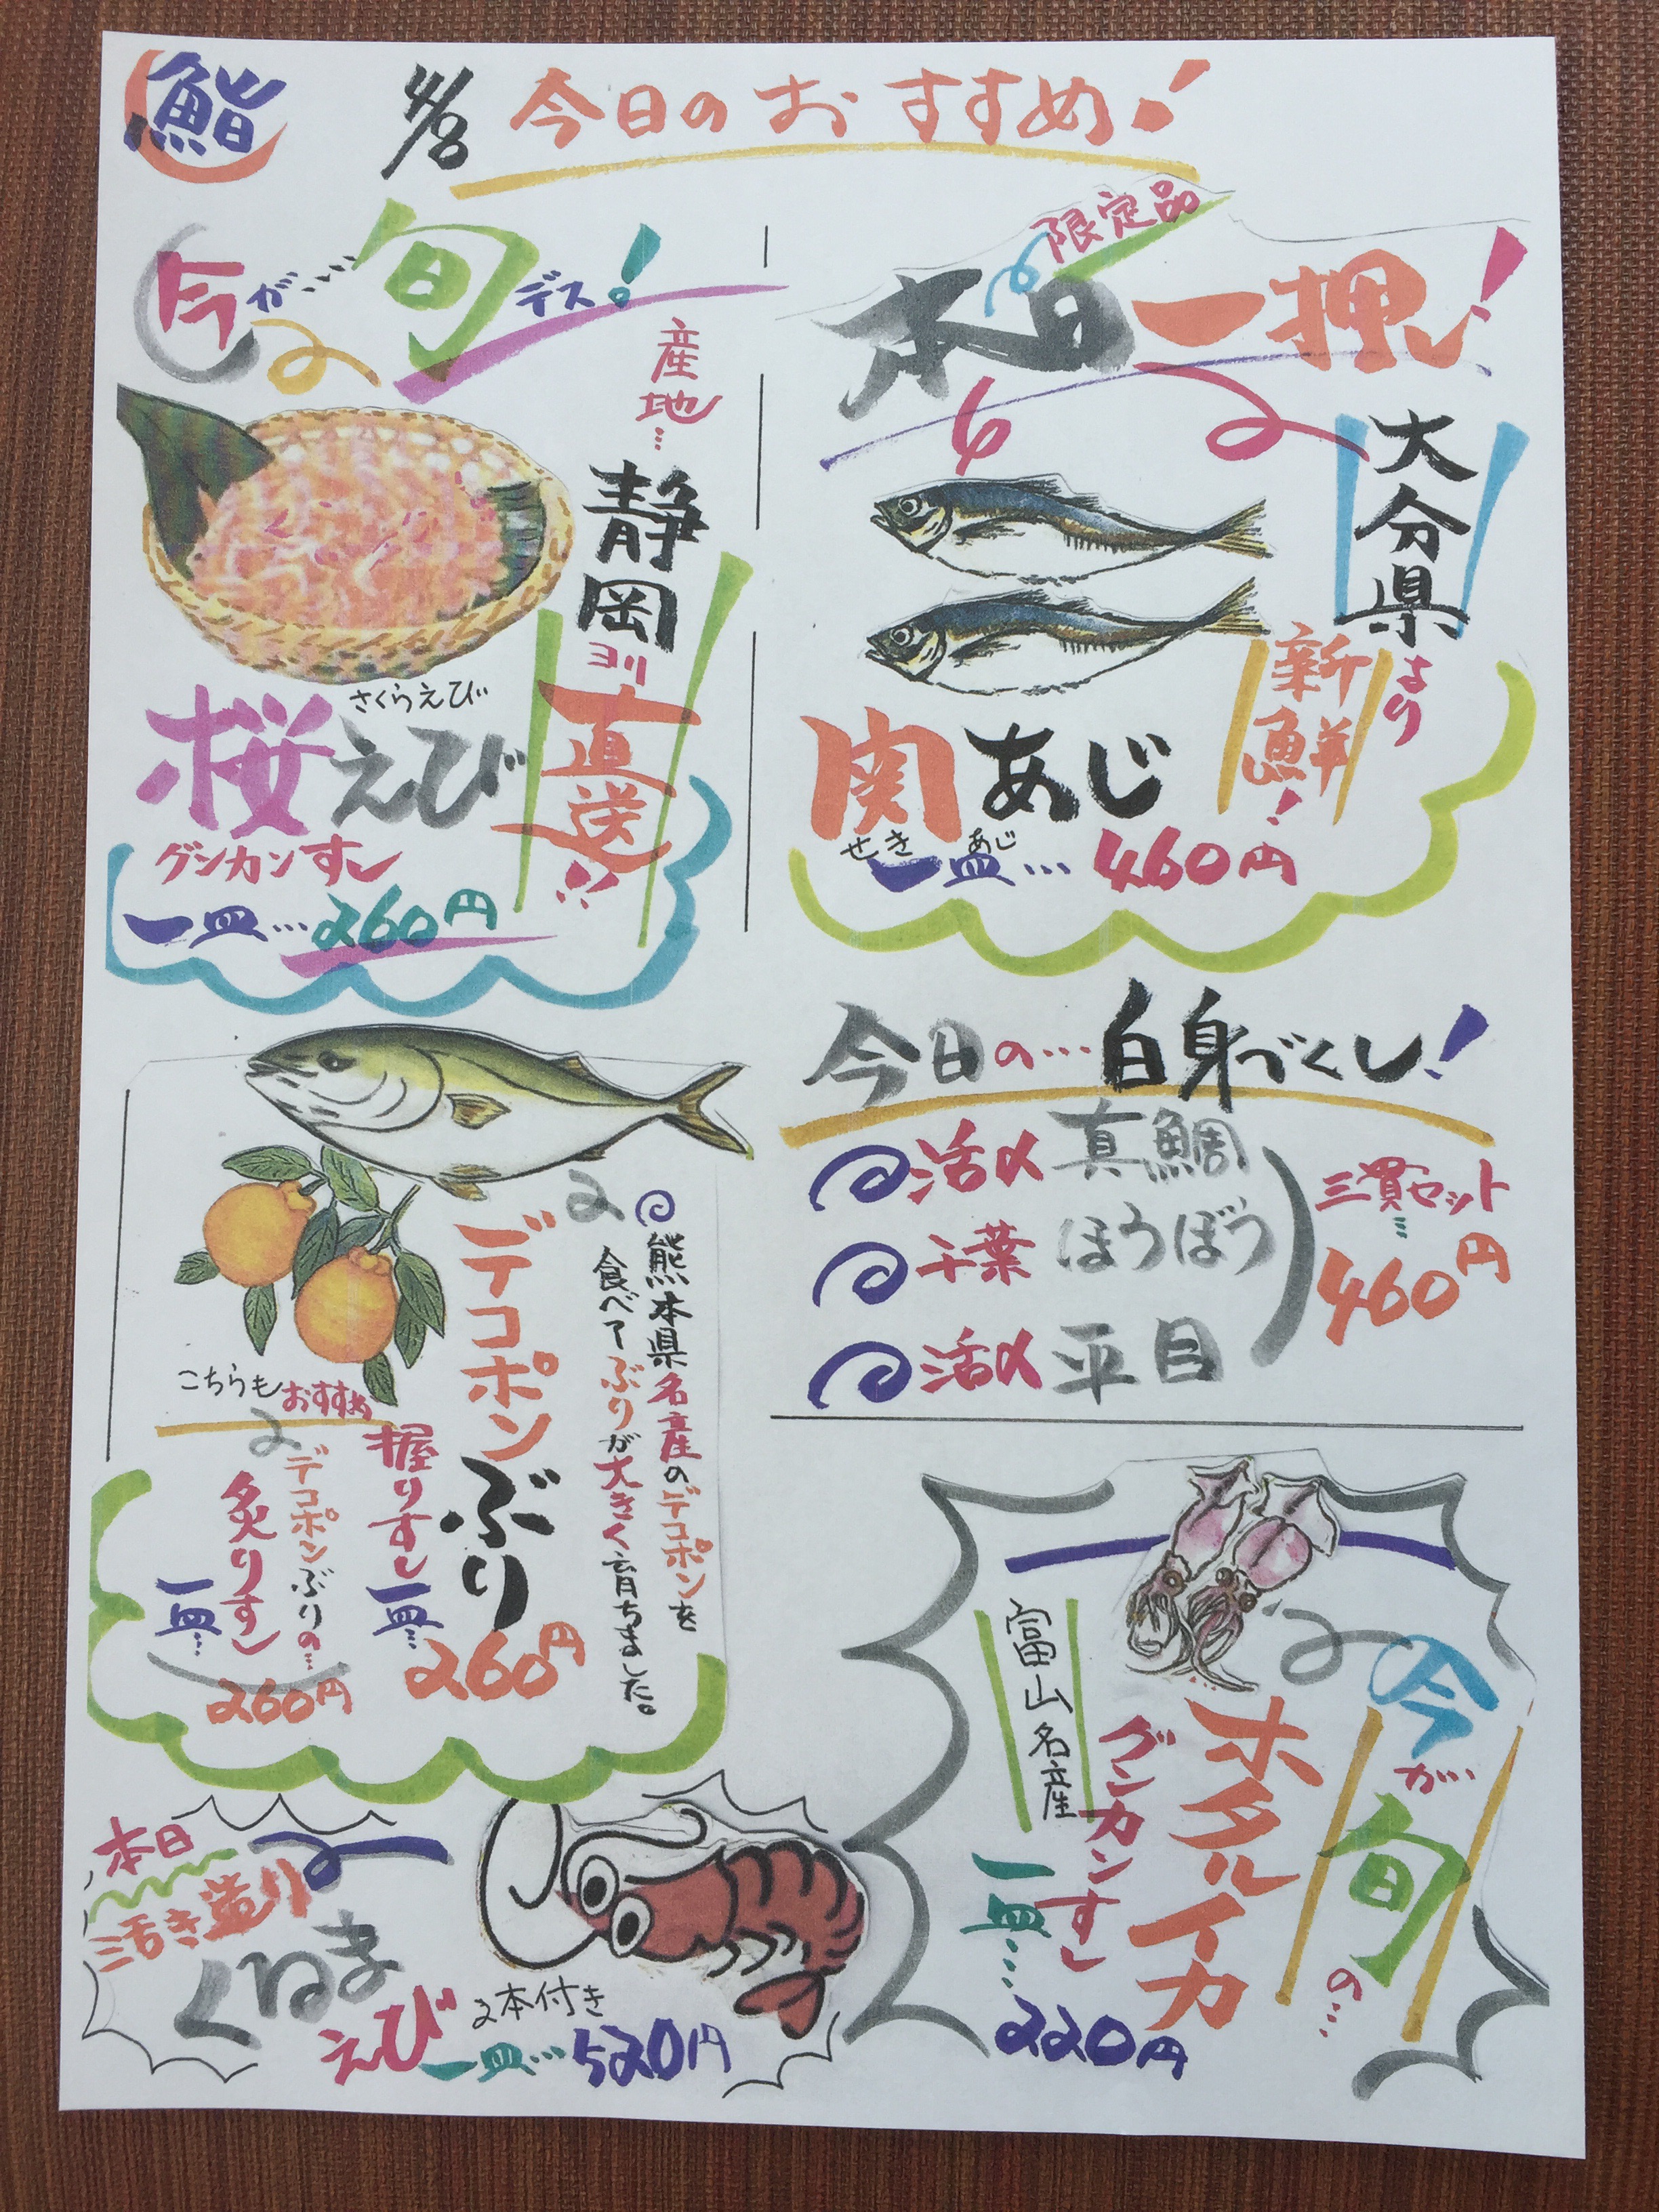 鮨
今日のおすすめ!
今が…旬デス!
産地…
静岡ヨリ
直送!!
さくらえび
桜えび
グンカンすし
一皿…260円
限定品
本日一押し!
大分県より
新鮮!
関あじ
せき あじ
一皿…460円
今日の…白身づくし!
活〆 真鯛
千葉 ほうぼう
活〆 平目
三貫セット…
460円
熊本県名産のデコポンを
食べてぶりが大きく育ちました。
デコポンぶり
握りすし
一皿…260円
こちらもおすすめ
デコポンぶりの…
炙りすし
一皿…260円
今が旬の…
ホタルイカ
グンカンすし
富山名産
一皿…220円
本日
活き造り
くるま
えび
2本付き
一皿…520円